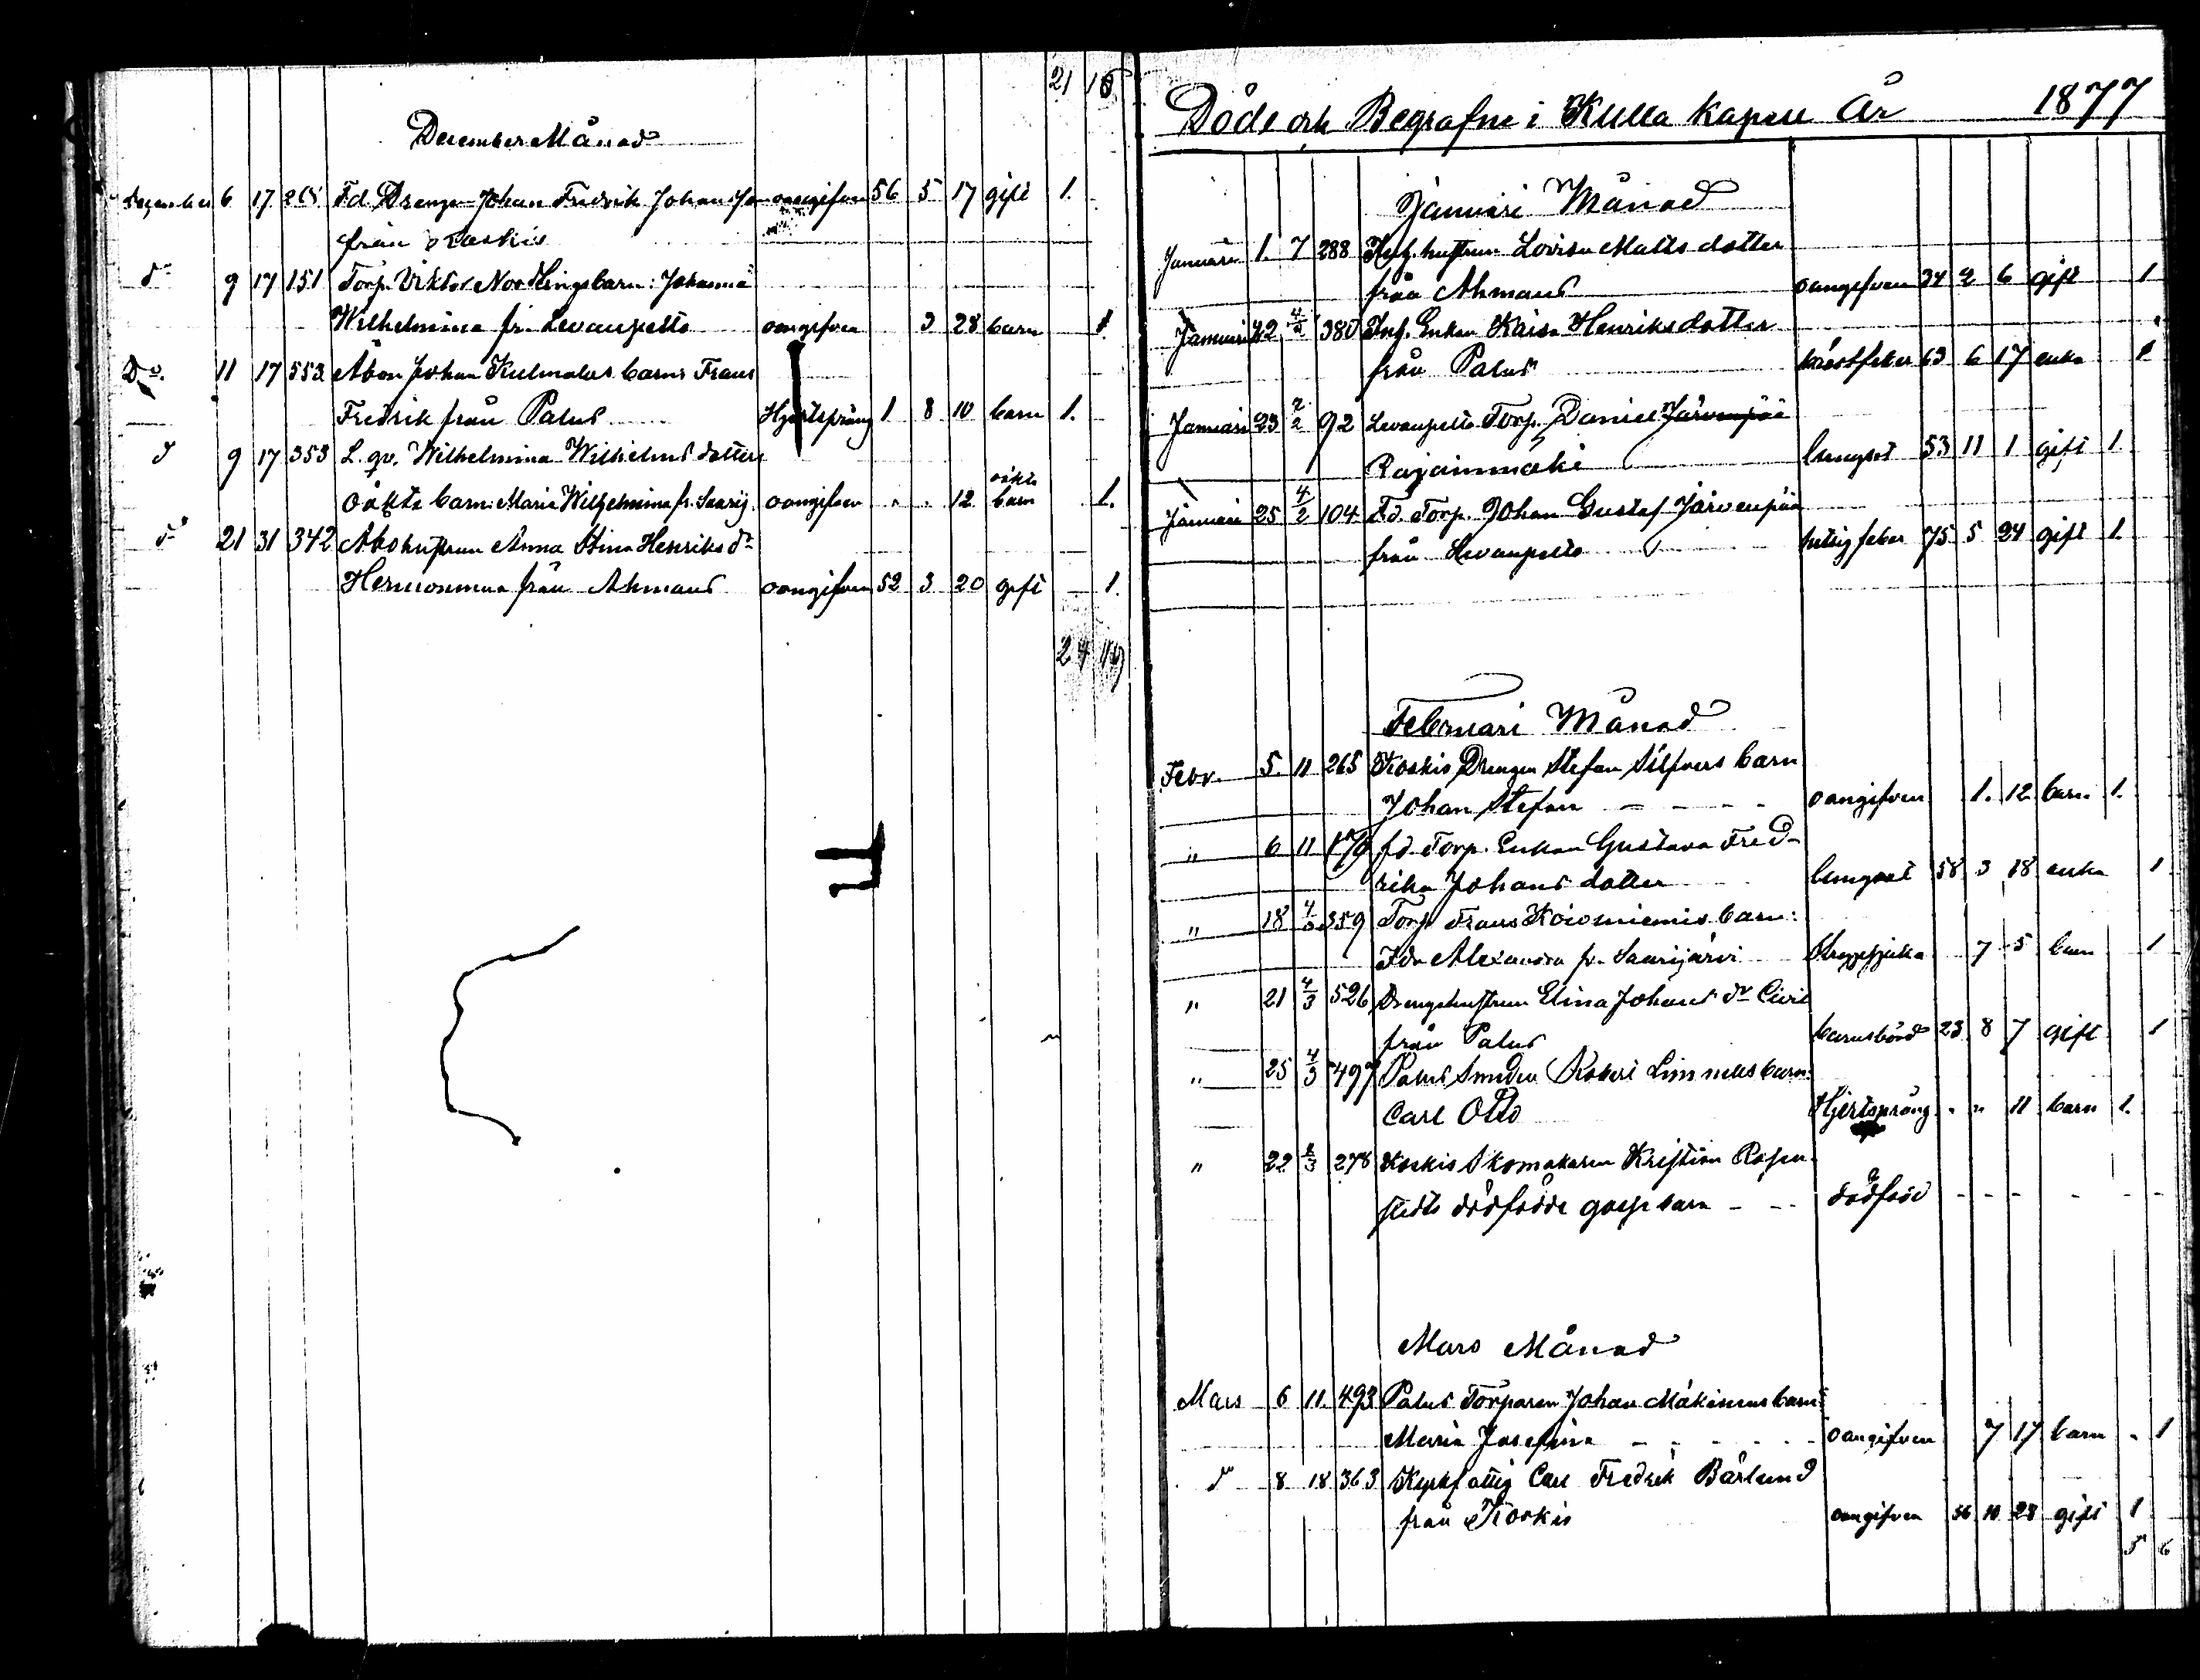 21 18
December Månad
December 6 17 265 Fd. Drengen Johan Fredrik Johansson oangifven 56 5 17 gift 1.
från Koskis
d:o 9 17 151 Torp. Viktor Nordlings barn: Johanna
Wilhelmina fr. Levanpelto oangifven 3 28 barn 1
Do. 11 17 553 Åbon Johan Kulmalas barn: Frans
Fredrik från Palus Hjertsprång 1 8 10 barn 1.
d 9 17 353 L. qv. Wilhelmina Wilhelms dotters
oäkta
oäkta barn: Maria Wilhelmina fr. Saarij. oangifven " " 12 barn 1.
d:o 21 31 342 Åbohustrun Anna Stina Henriks dr
från Ahmaus oangifven 52 3 20 gift 1.
24
Döde och Begrafne i Kulla Kapell År 1877
Januari Månad
Januari 1. 7 288 Inh. hustrun Lovisa Matts dotter
från Ahmaus oangifven 34 2 6 gift 1
Januari 22 4/2 380 Inh. Enkan Kaisa Henriksdotter
från Palus bröstfeber 63 6 17 enka 1
Januari 23 2/2 92 Levanpelto Torp. Daniel Järvenpää
Rajainmäki lungsot 53 11 1 gift 1.
Januari 25 4/2 104 Fd. Torp. Johan Gustaf Järvenpää
från Levanpelto hetsig feber 75 5 24 gift 1.
Februari Månad
Febr. 5. 11 265 Koskis Drengen Stefan Silfvers barn
Johan Stefan oangifven 1. 12 barn 1.
" 6 11 fd. Torp. Enkan Gustava Fred-
rika Johans dotter lungsot 58 3 18 enka 1
" 18 4/3 359 Torp Frans Koivuniemis barn:
Ida Alexandra fr. Saarijärvi 7 5 barn 1
" 21 4/3 526 Drengehustrun Elina Johans dr Civil
från Palus barnsbörd 23 8 7 gift 1
" 25 4/3 497 Palus Smeden Robert barn:
Carl Otto Hjertsprång " " 11 barn 1.
" 22 4/3 278 Koskis Skomakaren Kristian Rosen-
stedts dödfödde gossebarn - - dödfödd - - - - - -
Mars Månad
Mars 6 11 493 Palus Torparen Johan Mäkinens barn:
Maria Josefina oangifven 7 17 barn " 1
d:o 8 18 363 Kyrkfattig Carl Fredrik Bärlund
från Koskis oangifven 56 10 28 gift 1
5 6